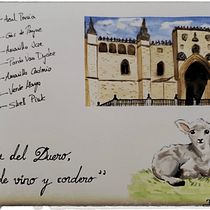 Azul Persia
Gris de Payne
Amarillo Ocre
Pardo Van Dycke
Amarillo Cadmio
Verde Musgo
Shell Pink
del Duero,
de vino y cordero"